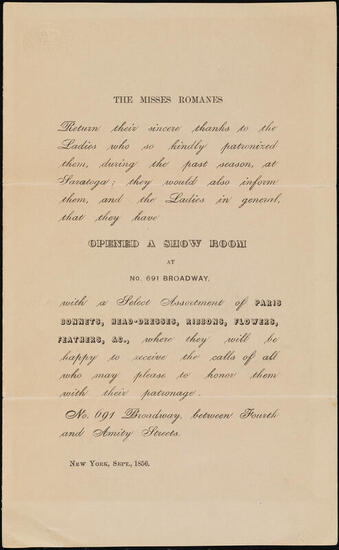 THE MISSES ROMANES
Return their sincere thanks to the
Ladies who so kindly patronized
them, during the past season, at
Saratoga; they would also inform
them, and the Ladies in general,
that they have
OPENED A SHOW ROOM
AT
No. 691 BROADWAY,
with a Select Assortment of PARIS
BONNETS, HEAD-DRESSES, RIBBONS, FLOWERS,
FEATHERS, &C., where they will be
happy to receive the calls of all
who may please to honor them
with their patronage.
No. 691 Broadway, between Fourth
and Amity Streets.
NEW YORK, SEPT., 1856.